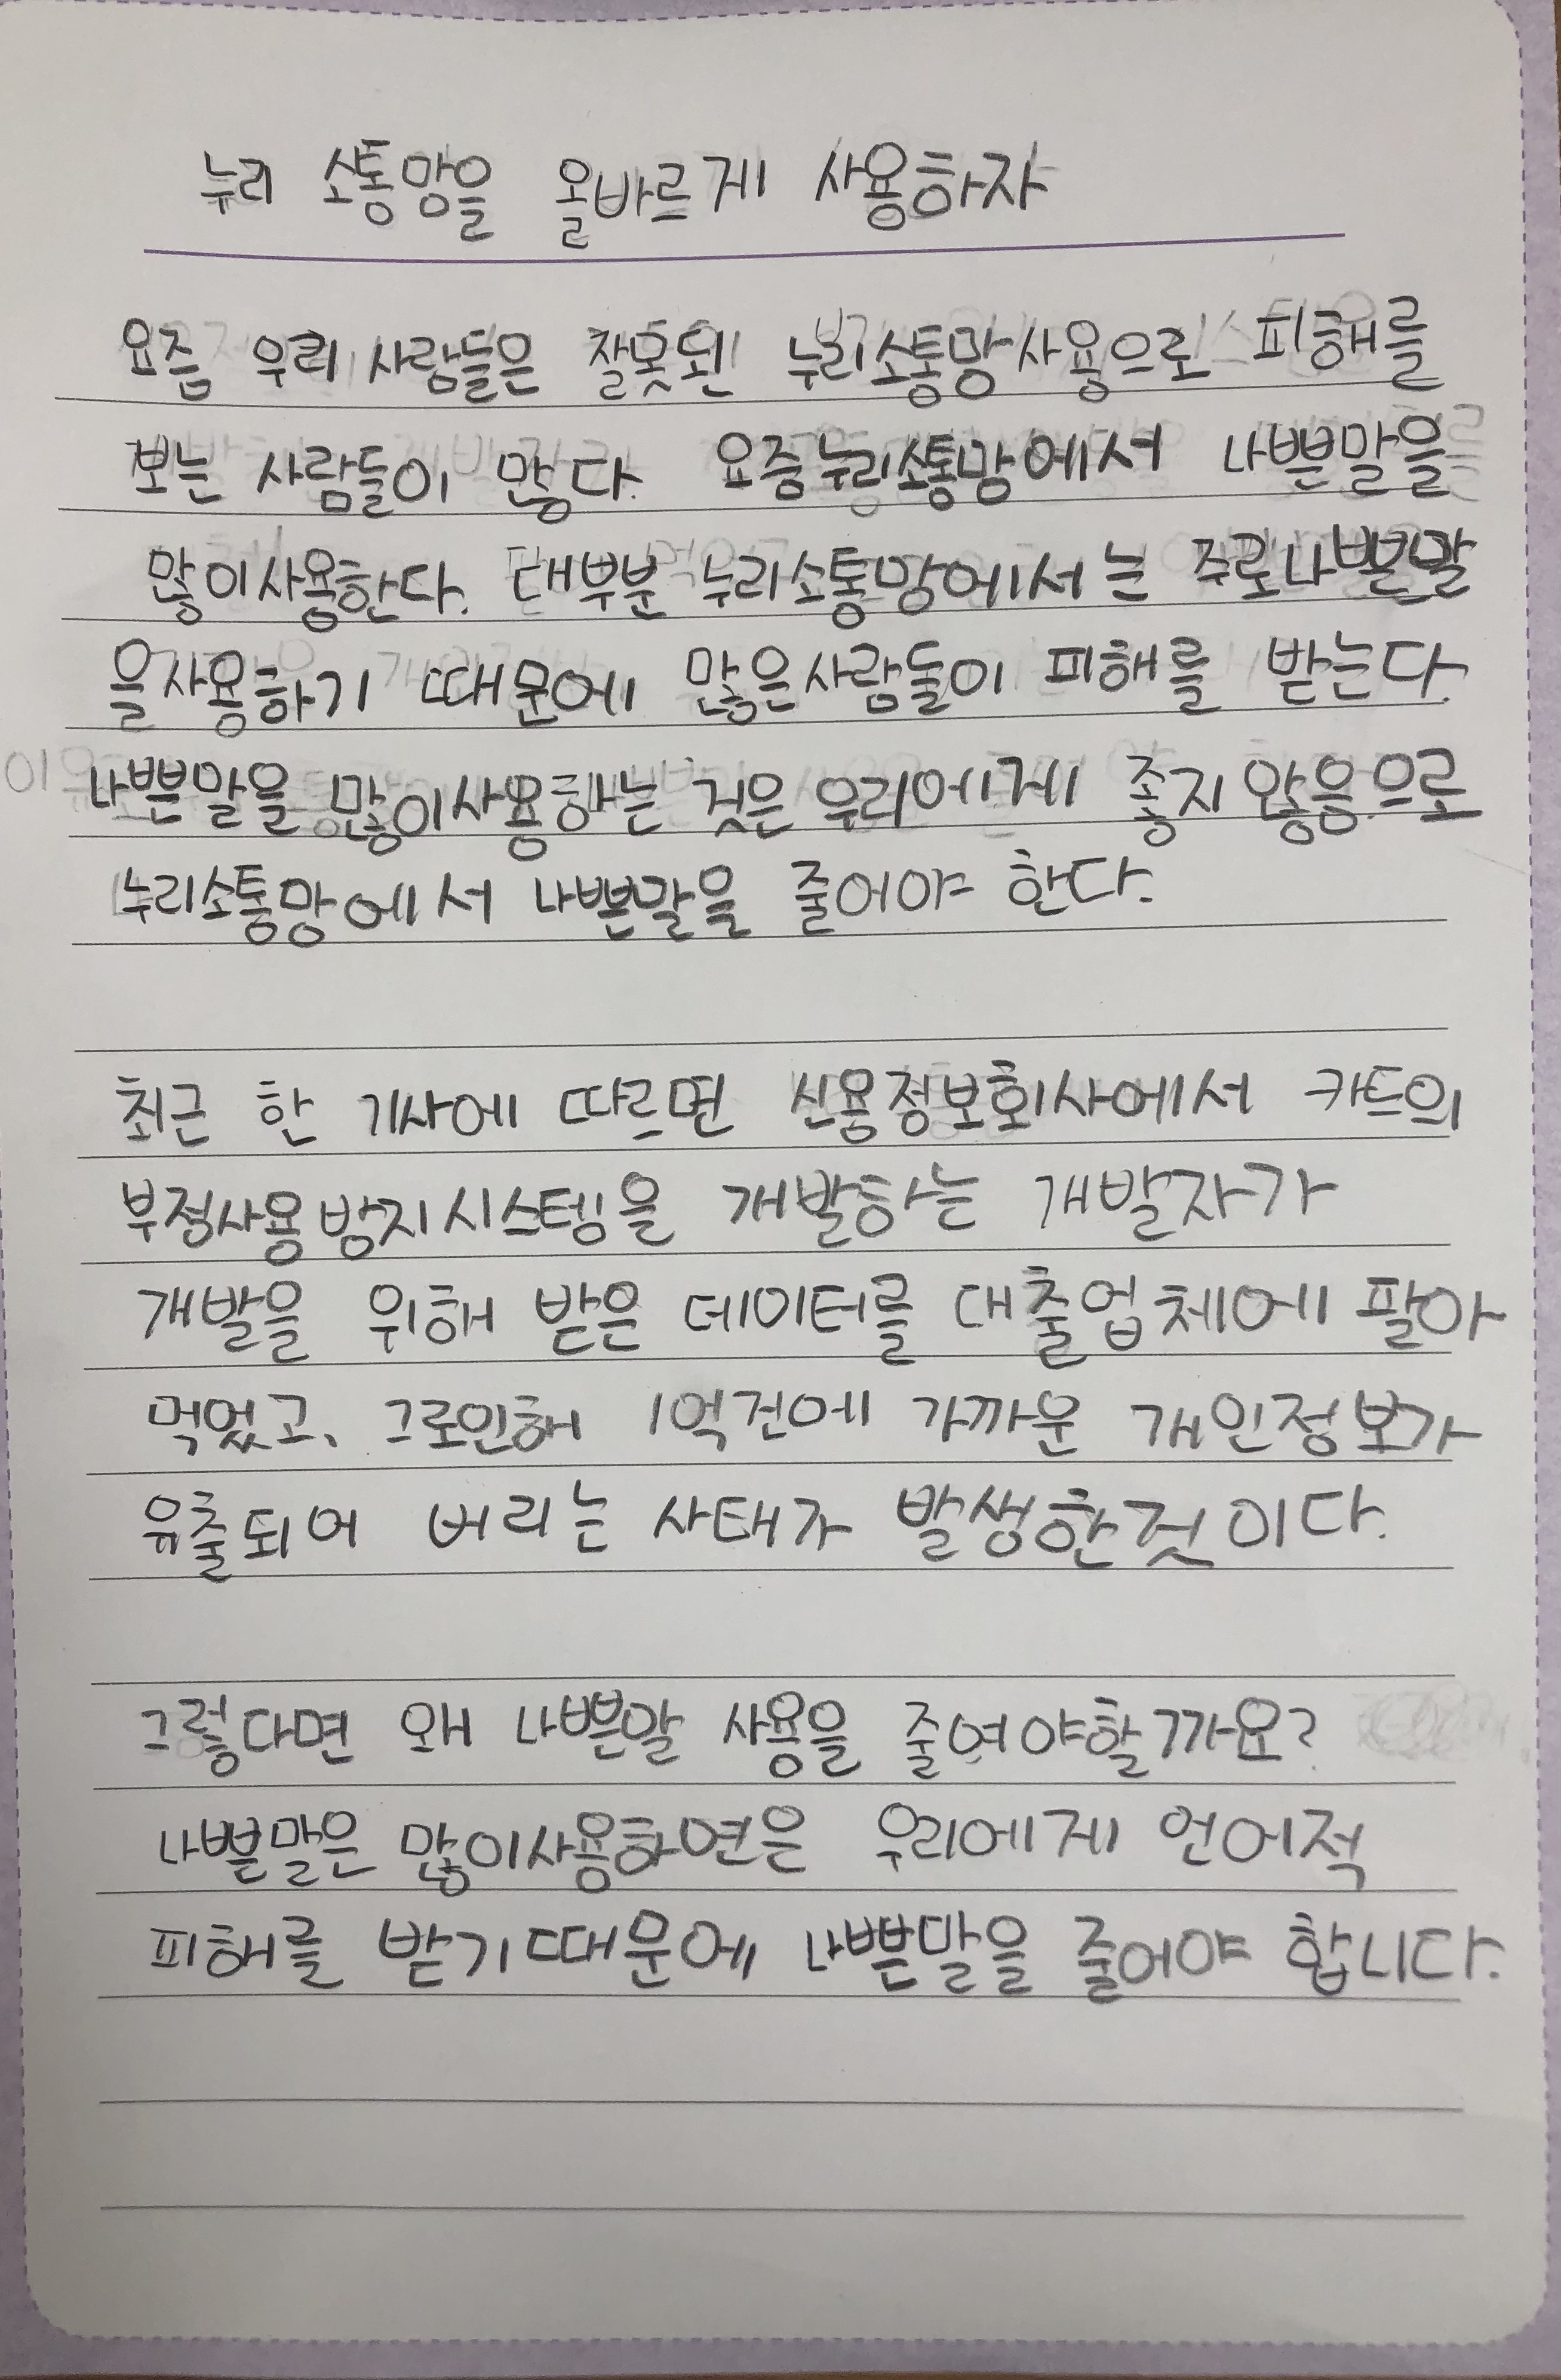 누리 소통망을 올바르게 사용하자
요즘 우리 사람들은 잘못된 누리소통망사용으로 피해를
보는 사람들이 많다. 요즘누리소통망에서 나쁜말을
많이사용한다. 대부분 누리소통망에서는 주로나쁜말
을사용하기 때문에 많은사람들이 피해를 받는다.
나쁜말을 많이사용하는 것은 우리에게 좋지 않음으로
누리소통망에서 나쁜말을 줄어야 한다.
최근 한 기사에 따르면 신용정보회사에서 카드의
부정사용방지시스템을 개발하는 개발자가
개발을 위해 받은 데이터를 대출업체에 팔아
먹었고, 그로인해 1억건에 가까운 개인정보가
유출되어 버리는 사태가 발생한것이다.
그렇다면 왜 나쁜말 사용을 줄여야할까요?
나쁜말은 많이사용하면은 우리에게 언어적
피해를 받기때문에 나쁜말을 줄어야 합니다.